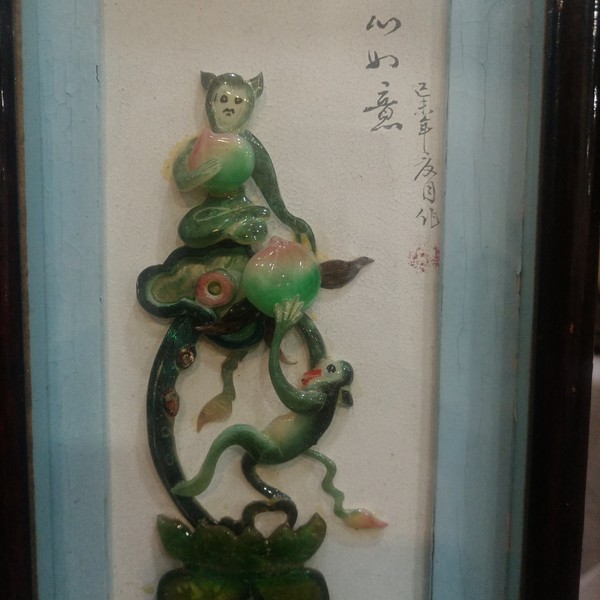 心如意
己未年友月作